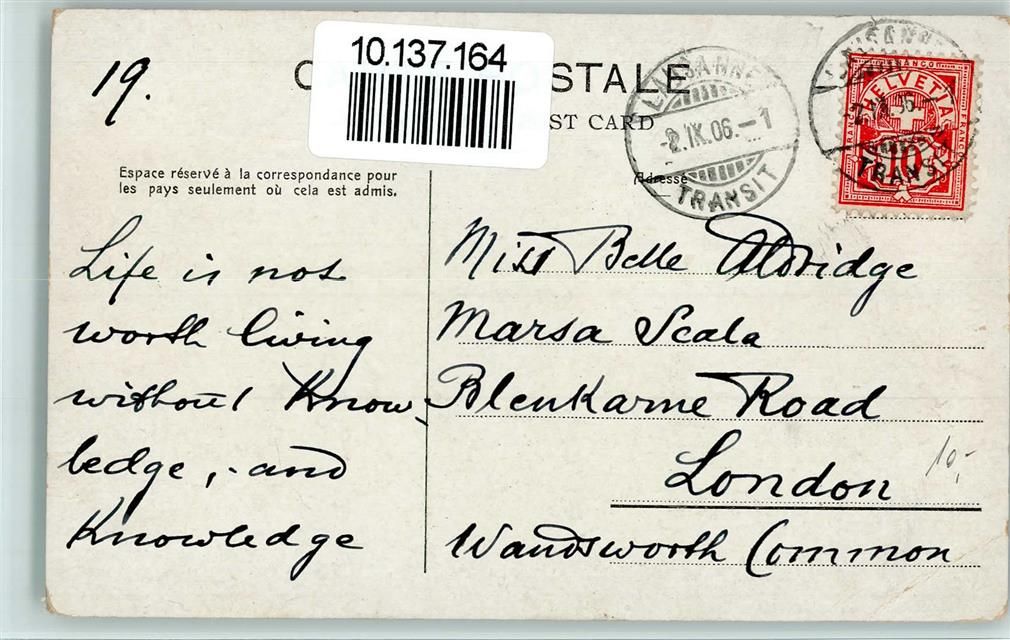 19.
10.137.164
C STALE
ST CARD
LAUSANNE
-2.IX.06.-1
TRANSIT
LAUSANNE
TRANSIT
FRANCO
HELVETIA
10
Espace réservé à la correspondance pour
les pays seulement où cela est admis.
Adresse
Life is not
worth living
without Know-
ledge, - and
Knowledge
Miss Belle Aldridge
Marsa Scala
Blenkarne Road
London
Wandsworth Common
10,-